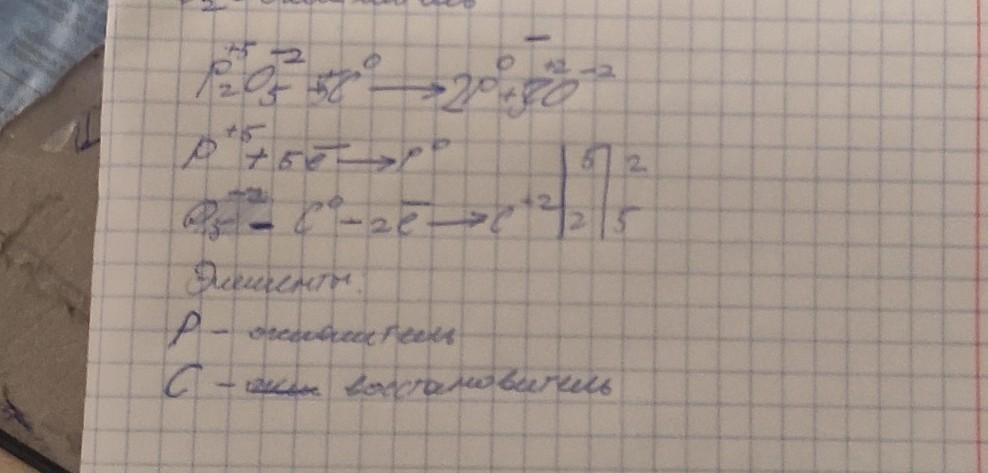 P₂⁺⁵O₅⁻² + 5C⁰ → 2P⁰ + 5C⁺²O⁻²
P⁺⁵ + 5e⁻ → P⁰ | 5 | 2
C⁰ - 2e⁻ → C⁺² | 2 | 5
Элементы:
P - окислитель
C - восстановитель